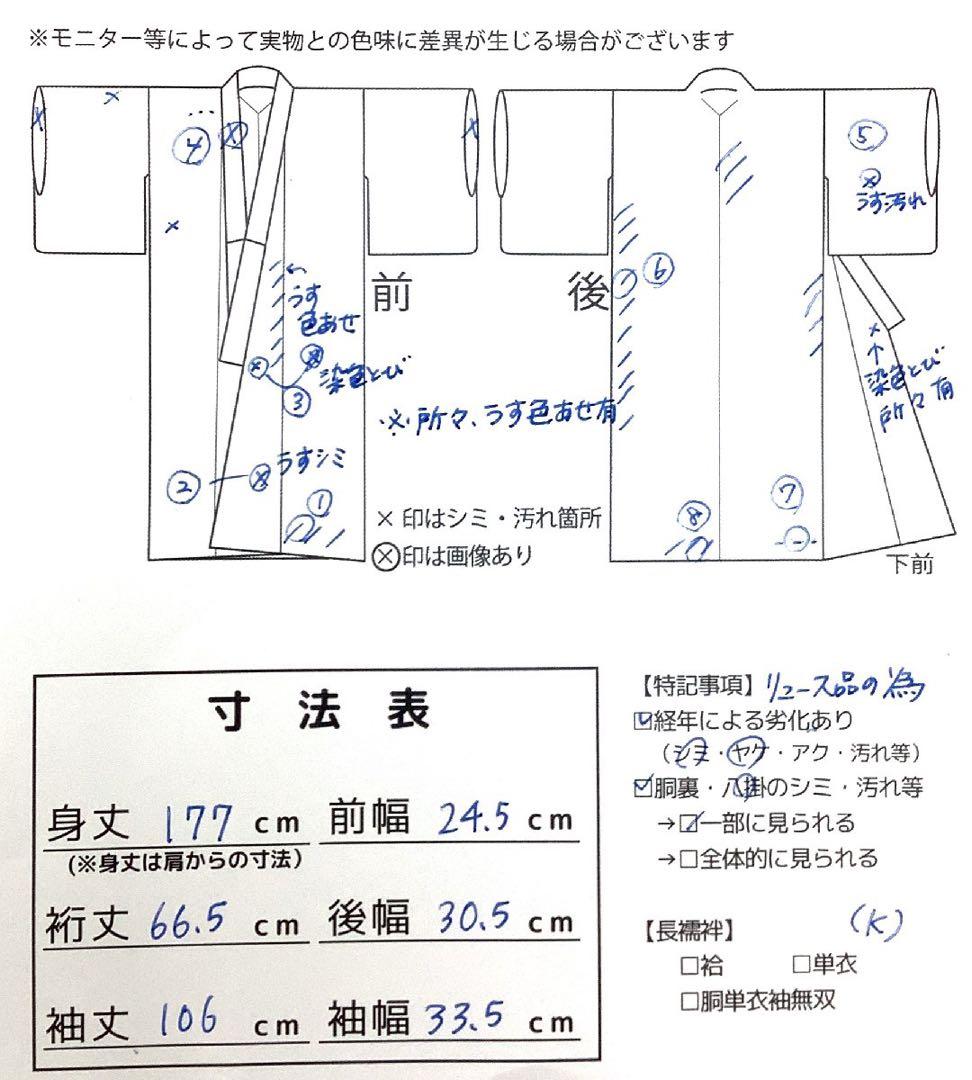 ※モニター等によって実物との色味に差異が生じる場合がございます
④
⑤
うす汚れ
⑥
うす
色あせ
前
後
染色とび
③
※所々、うす色あせ有
染色とび
所々有
うすシミ
②
①
⑦
⑧
×印はシミ・汚れ箇所
⊗印は画像あり
下前
寸法表
身丈 177 cm 前幅 24.5 cm
(※身丈は肩からの寸法)
裄丈 66.5 cm 後幅 30.5 cm
袖丈 106 cm 袖幅 33.5 cm
【特記事項】リユース品の為
☑経年による劣化あり
(シミ・ヤケ・アク・汚れ等)
☑胴裏・八掛のシミ・汚れ等
→☑一部に見られる
→□全体的に見られる
【長襦袢】 (K)
□袷 □単衣
□胴単衣袖無双